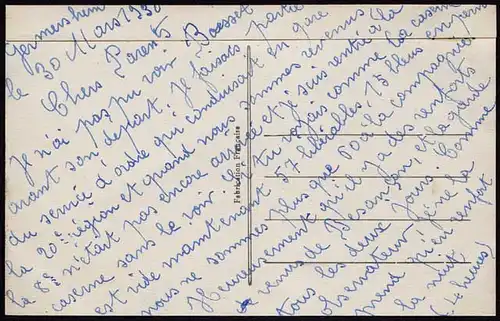 Germersheim
le 30 Mars 1930
Chers Parents
Je n'ai pas pu voir Bousset
avant son départ. Je faisais partie
du service d'ordre qui conduisait en gare
la 20e région et quand nous sommes revenus
la 8e n'était pas encore arrivée et je suis rentré à la
caserne sans le voir. Tu vois comme la caserne
est vide maintenant 57 libérables, 75 bleus en perm
nous ne sommes plus que 60 à la compagnie
Heureusement qu'il y a des renforts
venus de Besançon, et la garde
tous les deux jours. Comme
observateur je ne la
prend qu'en renfort
la nuit
(4 heures)
Fabrication Française